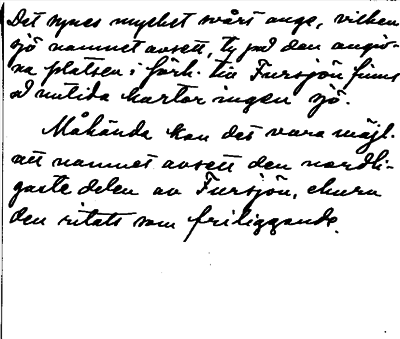 Det synes mycket svårt ange, vilken
sjö namnet avsett, ty på den angiv-
na platsen i förh. till Fursjön finns
å nutida kartor ingen sjö.
Måhända kan det vara möjl.
att namnet avsett den nordli-
gaste delen av Fursjön, ehuru
den ritats som friliggande.